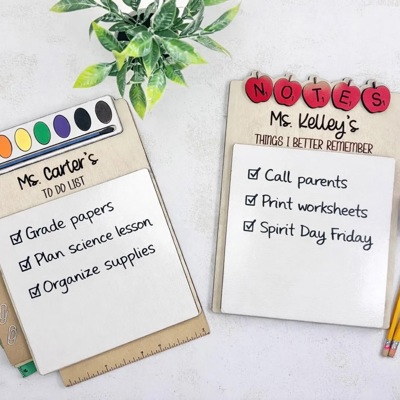 Ms. Carter's
TO DO LIST
Grade papers
Plan science lesson
Organize supplies
NOTES
Ms. Kelley's
THINGS I BETTER REMEMBER
Call parents
Print worksheets
Spirit Day Friday